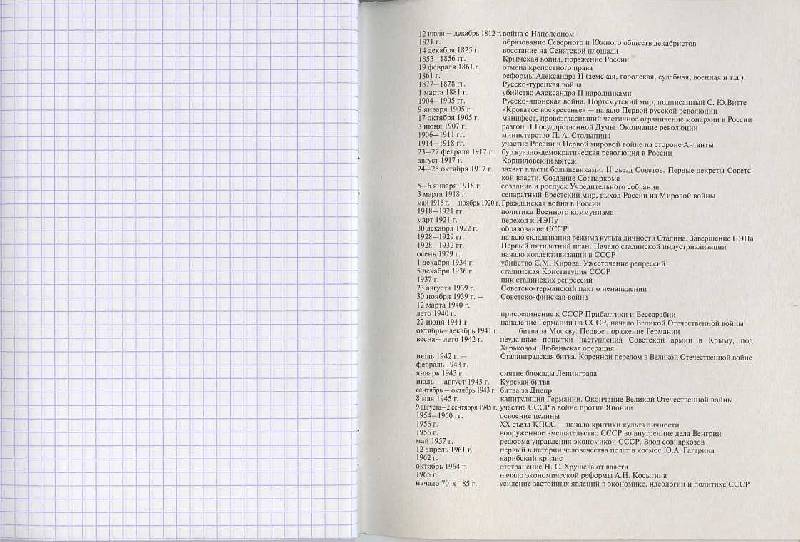 12 июня – декабрь 1812 г. война с Наполеоном
1821 г. образование Северного и Южного обществ декабристов
14 декабря 1825 г. восстание на Сенатской площади
1853–1856 гг. Крымская война, поражение России
19 февраля 1861 г. отмена крепостного права
1861 г. реформы Александра II (земская, городская, судебная, военная и т.д.)
1877–1878 гг. Русско-турецкая война
1 марта 1881 г. убийство Александра II народниками
1904–1905 гг. Русско-японская война. Портсмутский мир, подписанный С. Ю. Витте
9 января 1905 г. «Кровавое воскресенье» – начало Первой русской революции
17 октября 1905 г. манифест, провозгласивший частичное ограничение монархии в России
3 июня 1907 г. разгон II Государственной Думы. Окончание революции
1906–1911 гг. министерство П. А. Столыпина
1914–1918 гг. участие России в Первой мировой войне на стороне Антанты
23–27 февраля 1917 г. буржуазно-демократическая революция в России
август 1917 г. Корниловский мятеж
24–25 октября 1917 г. захват власти большевиками. II съезд Советов. Первые декреты Советс-
кой власти. Создание Совнаркома
5–6 января 1918 г. создание и роспуск Учредительного собрания
3 марта 1918 г. сепаратный Брестский мир, выход России из Мировой войны
май 1918 г. – ноябрь 1920 г. Гражданская война в России
1918–1921 гг. политика Военного коммунизма
март 1921 г. переход к НЭПу
30 декабря 1922 г. образование СССР
1928–1929 гг. начало складывания режима культа личности Сталина. Завершение НЭПа
1928–1932 гг. Первый пятилетний план. Начало сталинской индустриализации
осень 1929 г. начало коллективизации в СССР
1 декабря 1934 г. убийство С.М. Кирова. Ужесточение репрессий
5 декабря 1936 г. сталинская Конституция СССР
1937 г. пик сталинских репрессий
23 августа 1939 г. Советско-германский пакт о ненападении
30 ноября 1939 г. – Советско-финская война
12 марта 1940 г.
лето 1940 г. присоединение к СССР Прибалтики и Бессарабии
22 июня 1941 г. нападение Германии на СССР, начало Великой Отечественной войны
октябрь–декабрь 1941 г. битва за Москву. Первое поражение Германии
весна – лето 1942 г. неудачные попытки наступления Советской армии в Крыму, под
Харьковом. Любаньская операция
июль 1942 г. – Сталинградская битва. Коренной перелом в Великой Отечественной войне
февраль 1943 г.
январь 1943 г. снятие блокады Ленинграда
июль – август 1943 г. Курская битва
сентябрь – октябрь 1943 г. битва за Днепр
8 мая 1945 г. капитуляция Германии. Окончание Великой Отечественной войны
9 августа – 2 сентября 1945 г. участие СССР в войне против Японии
1954–1960 гг. освоение целины
1956 г. XX съезд КПСС – начало критики культа личности
1956 г. вооруженное вмешательство СССР во внутренние дела Венгрии
май 1957 г. реформа управления экономикой СССР. Ввод совнархозов
12 апреля 1961 г. первый в истории человечества полет в космос Ю.А. Гагарина
1962 г. карибский кризис
октябрь 1964 г. отстранение Н. С. Хрущева от власти
1965 г. начало экономической реформы А.Н. Косыгина
начало 70-х – 85 г. усиление застойных явлений в экономике, идеологии и политике СССР